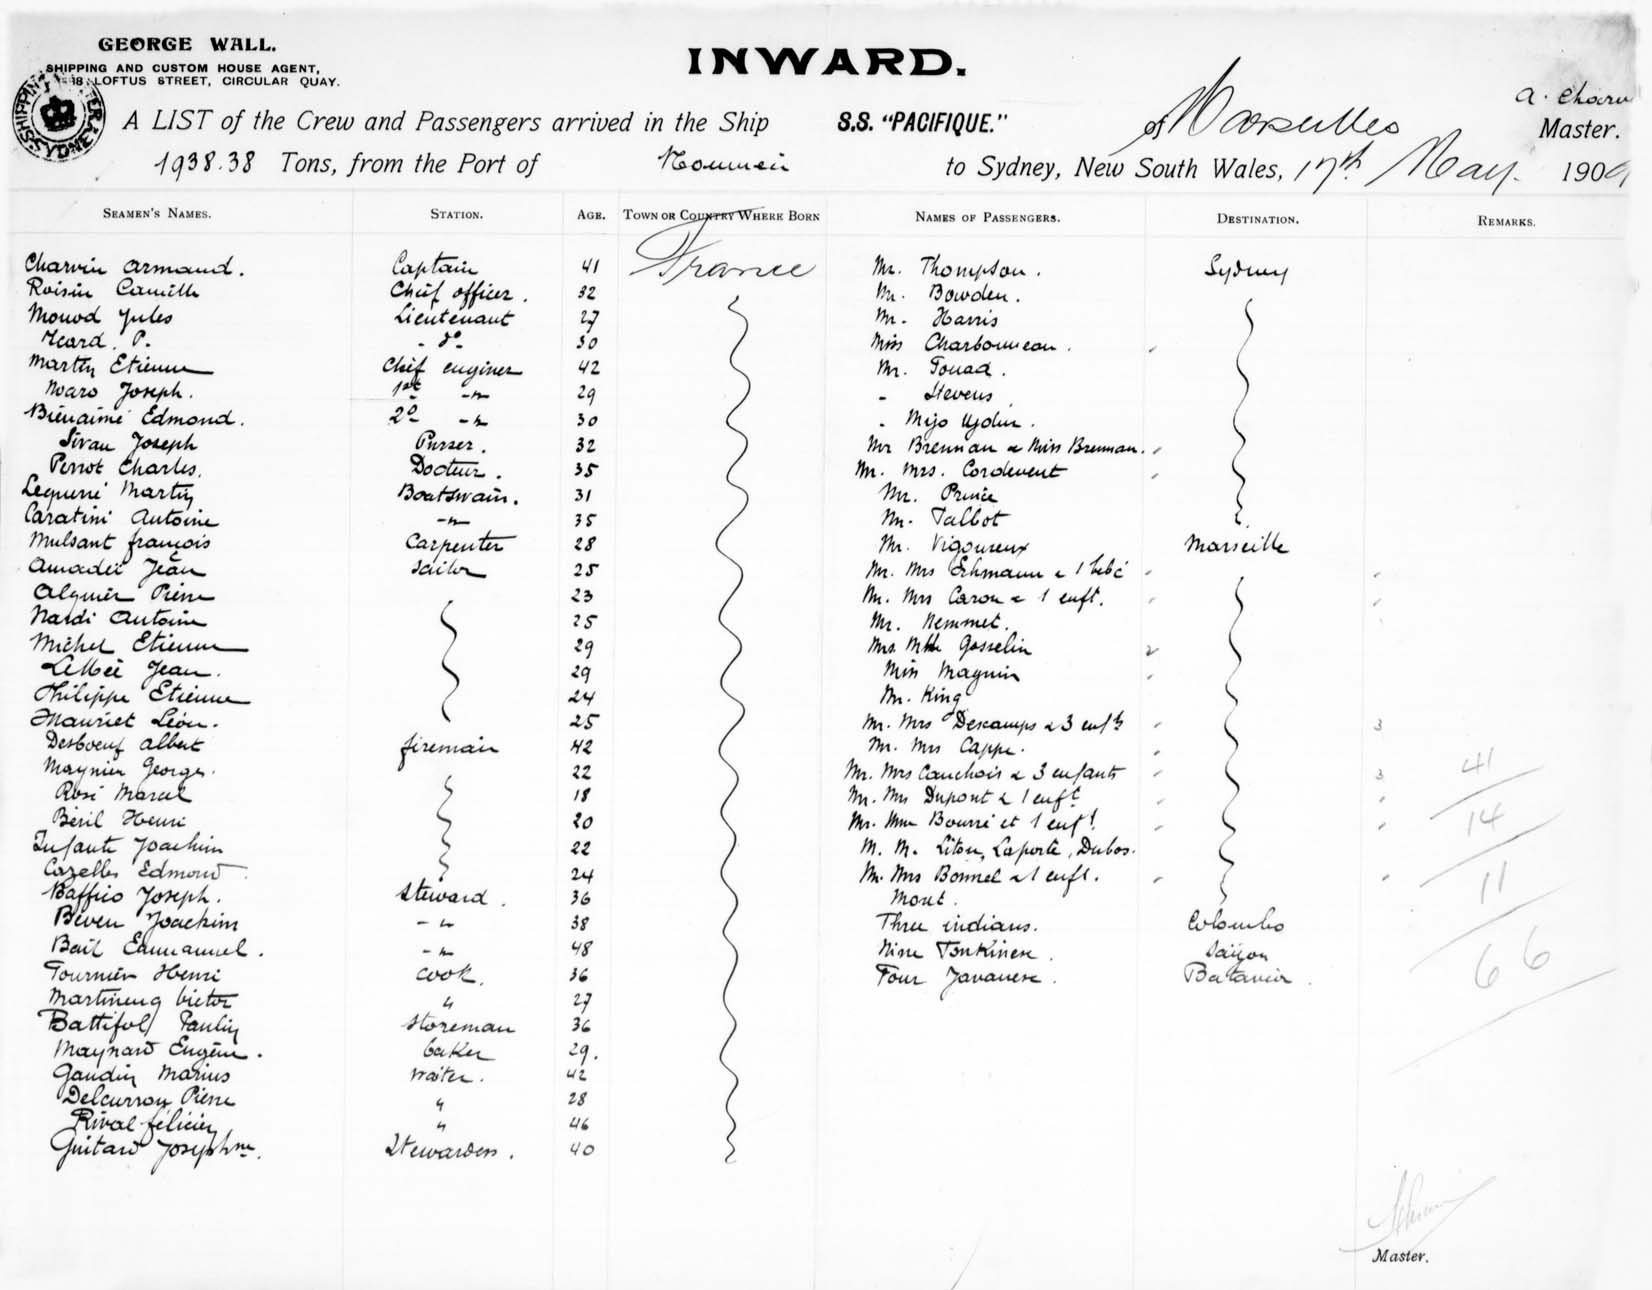 GEORGE WALL.
SHIPPING AND CUSTOM HOUSE AGENT,
LOFTUS STREET, CIRCULAR QUAY.
INWARD.
A. Charvin
A LIST of the Crew and Passengers arrived in the Ship S.S. "PACIFIQUE." of Marseilles Master.
1938.38 Tons, from the Port of Noumeia to Sydney, New South Wales, 17th May. 1909
SEAMEN'S NAMES. STATION. AGE. TOWN OR COUNTRY WHERE BORN NAMES OF PASSENGERS. DESTINATION. REMARKS.
Charvin Armand. Captain 41 France Mr. Thompson. Sydney
Roisin Camille Chief officer. 32 Mr. Bowden.
Monod Jules Lieutenant 27 Mr. Harris
Icard. P. - do - 30 Miss Charbonneau.
Martin Etienne Chief enginer 42 Mr. Fouad.
Maro Joseph. 1st -"- 29 - Stevens
Bienaimé Edmond. 2d -"- 30 -
Sivan Joseph Purser. 32 Mr Brennan & Miss Brennan.
Perrot Charles. Docteur. 35 Mr. Mrs. Cordevent
Lequerré Martin Boatswain. 31 Mr. Prince
Caratini Antoine -"- 35 Mr. Talbot
Mulsant françois Carpenter 28 Mr. Vigoureux Marseille
Amadeï Jean Sailor 25 Mr. Mrs Erhmann & 1 bébé
Alquier Pierre 23 Mr. Mrs Caron & 1 enft.
Nardi Antoine 25 Mr. Nemmet.
Michel Etienne 29 Mrs Mlle Gosselin
LeMeé Jean. 29 Miss Magnin
Philippe Etienne 24 Mr. King
Mauriet Léon. 25 Mr. Mrs Descamps & 3 enfts 3
Desboeuf Albert fireman 42 Mr. Mrs Cappe.
Maynier Georges. 22 Mr. Mrs Cauchois & 3 enfants 3
41
Rosé Marcel 18 Mr. Mrs Dupont & 1 enft
Béril Henri 20 Mr. Mme Bourré et 1 enft.
14
Infante Joachim 22 M. M. Litou, Laporte, Dubos.
Cazelles Edmond 24 Mr. Mrs Bonnel & 1 enft.
11
Baffico Joseph. Steward. 36 Mont.
Béven Joachim -"- 38 Three indians. Colombo
Bail Emmanuel. -"- 48 Nine Tonkinese. Saïgon
66
Tournier Henri Cook. 36 Four Javanese. Batavia.
Martineng Victor " 27
Battifol Paulin Storeman 36
Maynard Eugène. baker 29.
Gaudin Marius waiter. 42
Delcurrou Pierre " 28
Rival félicien " 46
Guitard Josephne. Stewardess. 40
Master.